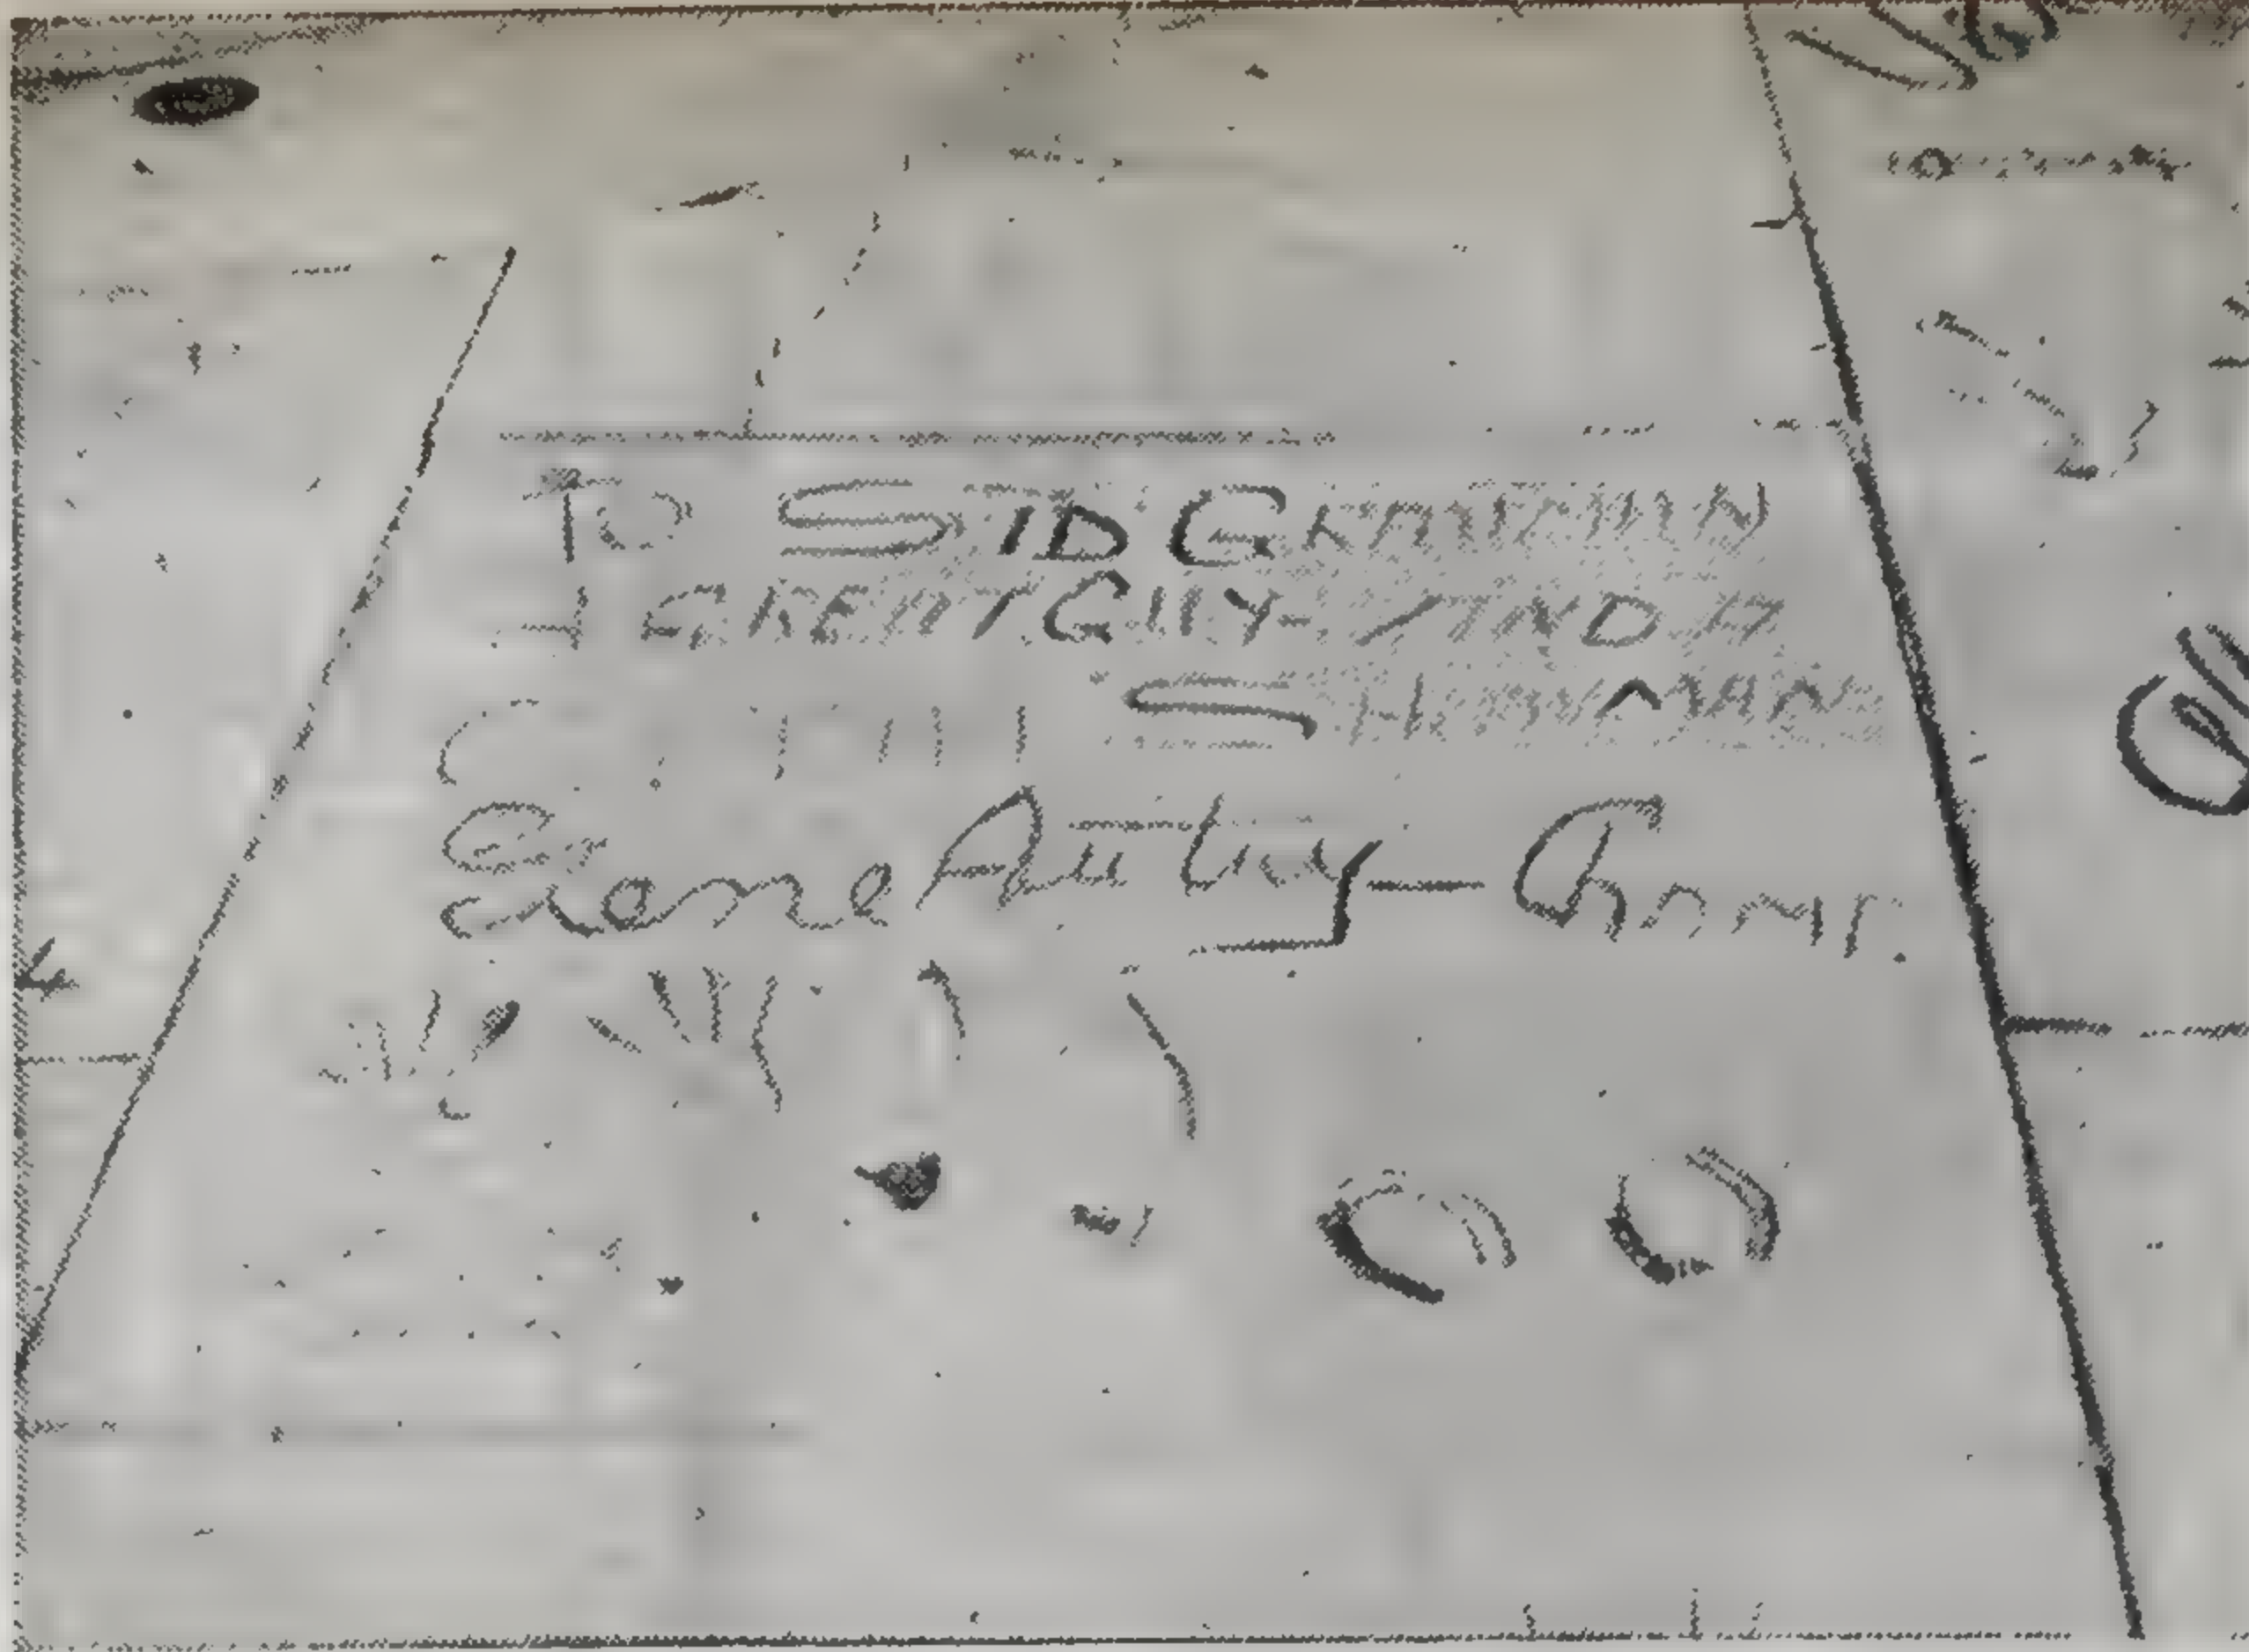 TO SID GRAUMAN
A GREAT GUY AND A
SHOWMAN
Gene Autry - Champ